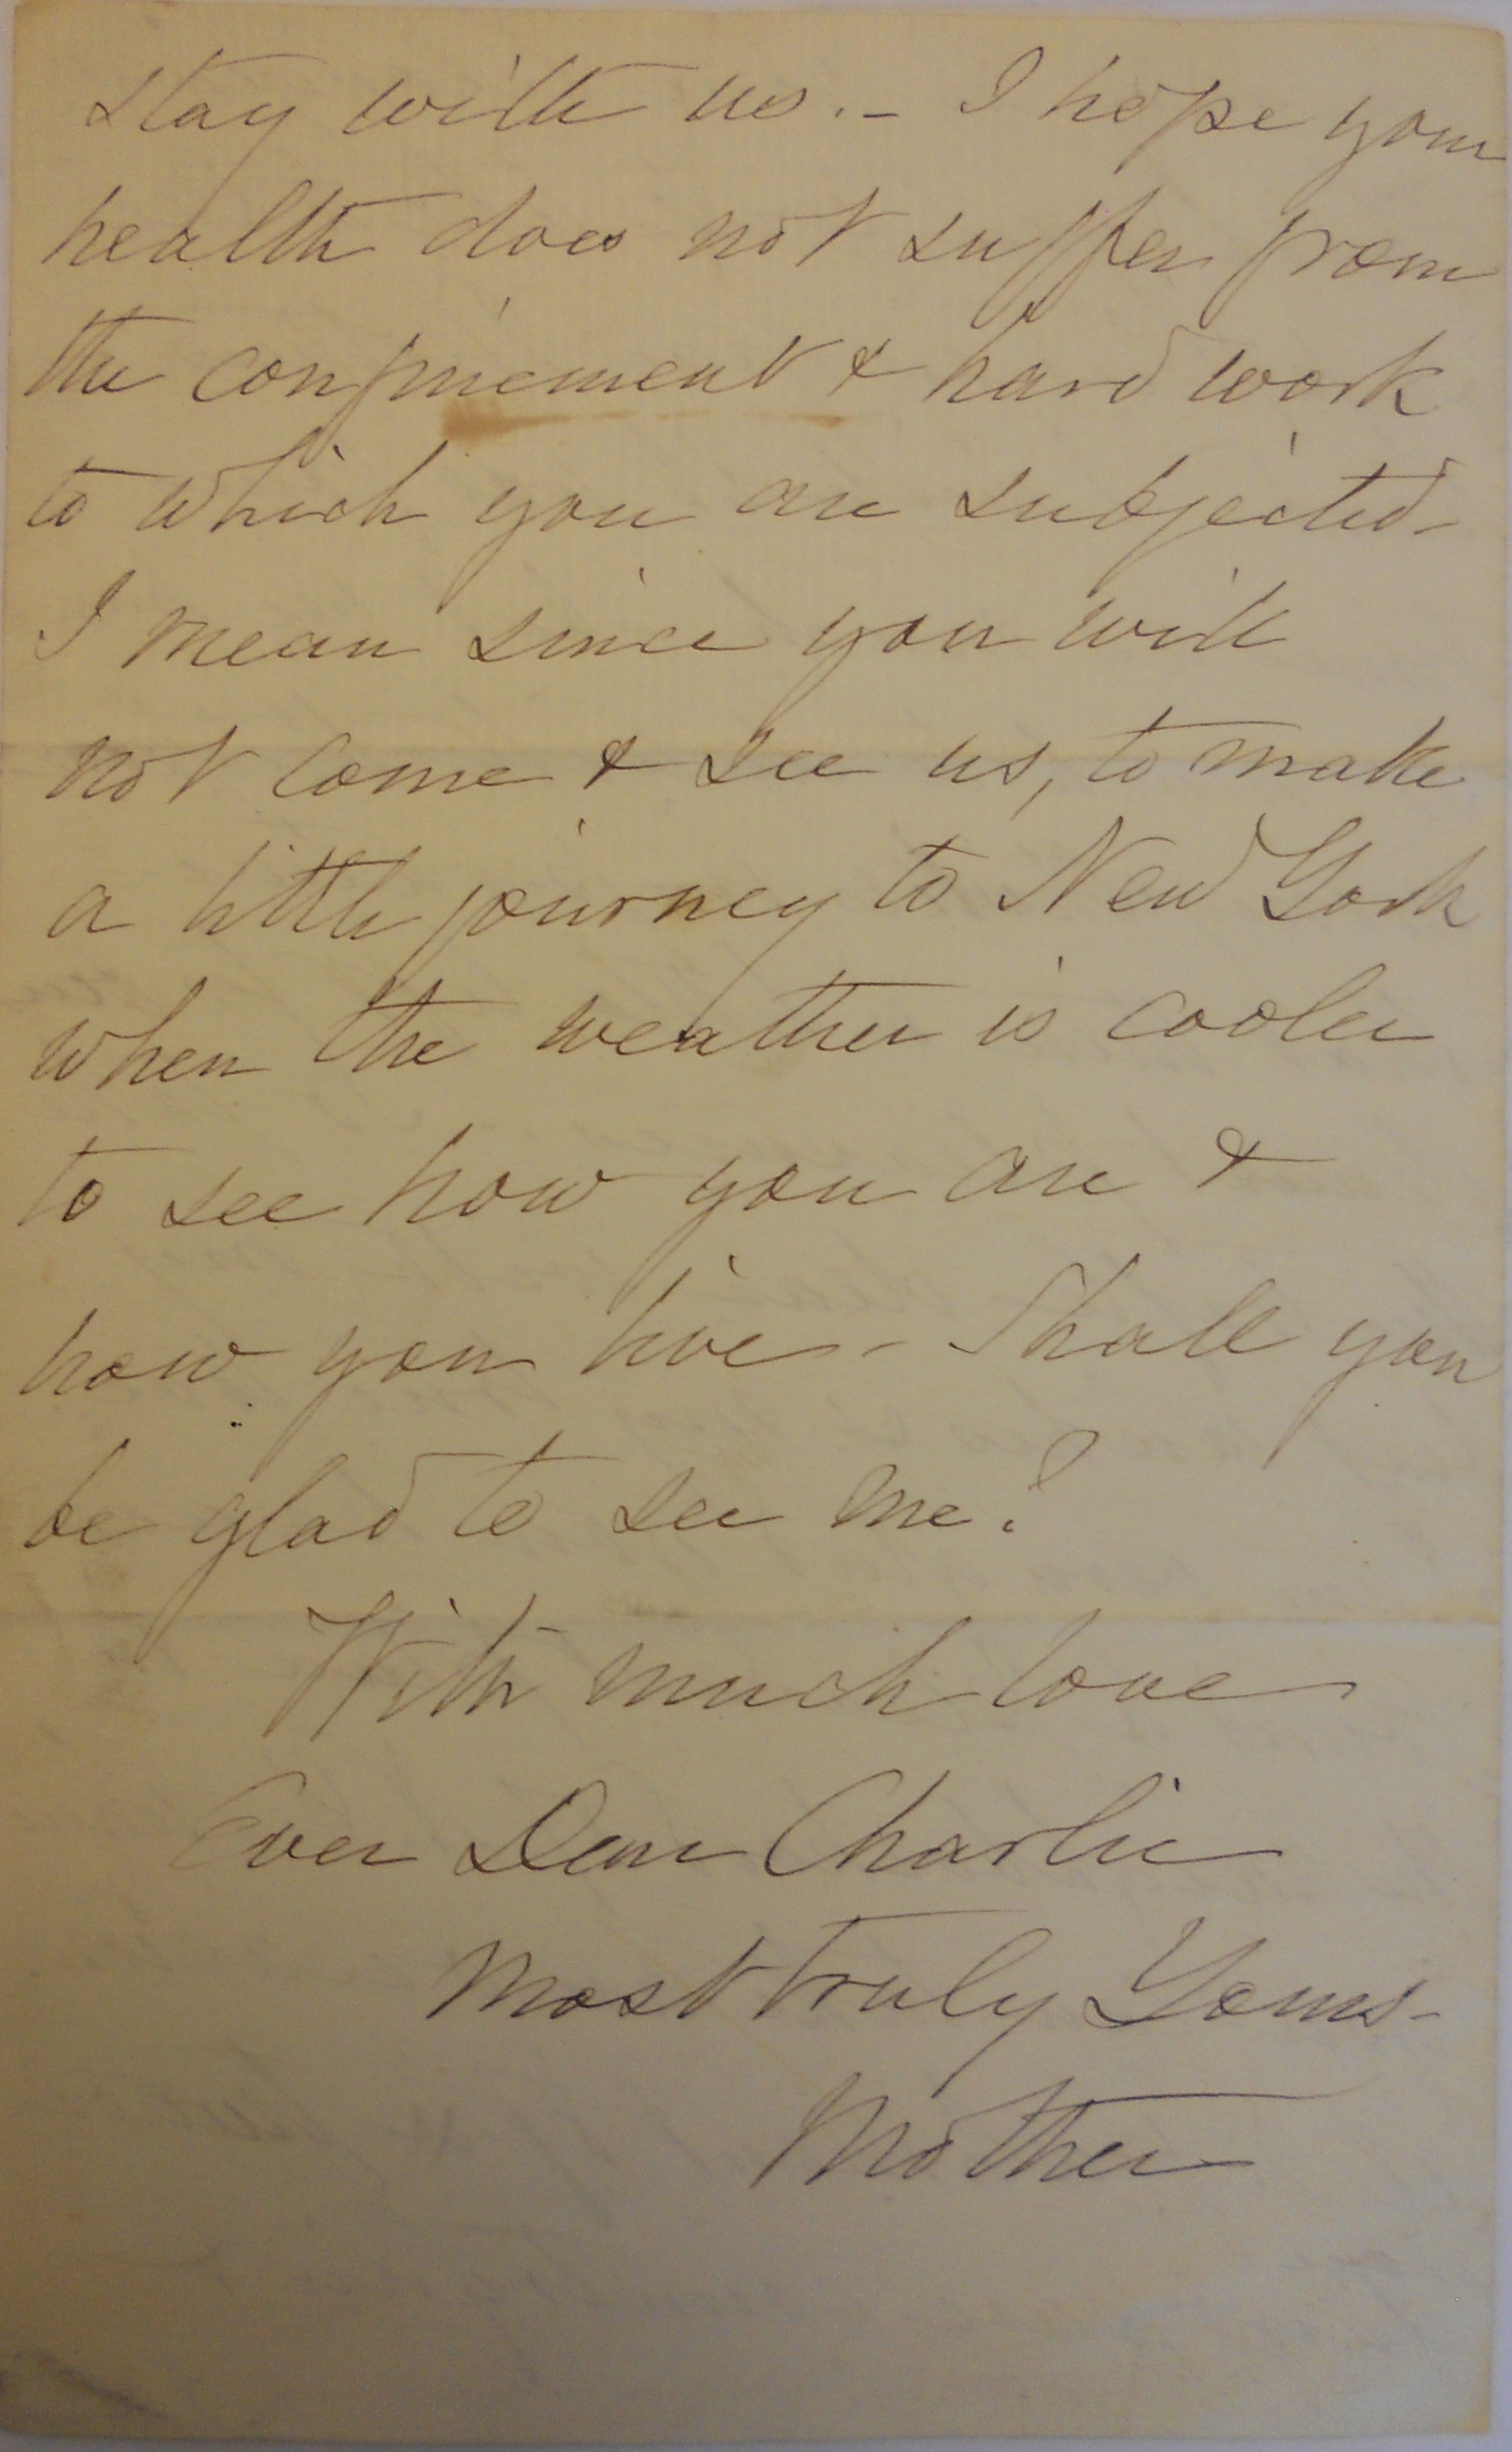 stay with us. - I hope your
health does not suffer from
the confinement & hard work
to which you are subjected -
I mean since you will
not come & see us, to make
a little journey to New York
when the weather is cooler
to see how you are &
how you live - Shall you
be glad to see me?
With much love
Ever Dear Charlie
Most truly Yours -
Mother